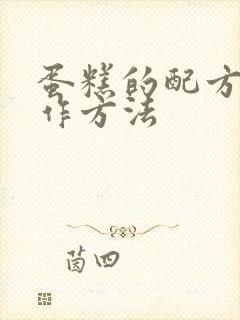 蛋糕的配方
作方法
茵四